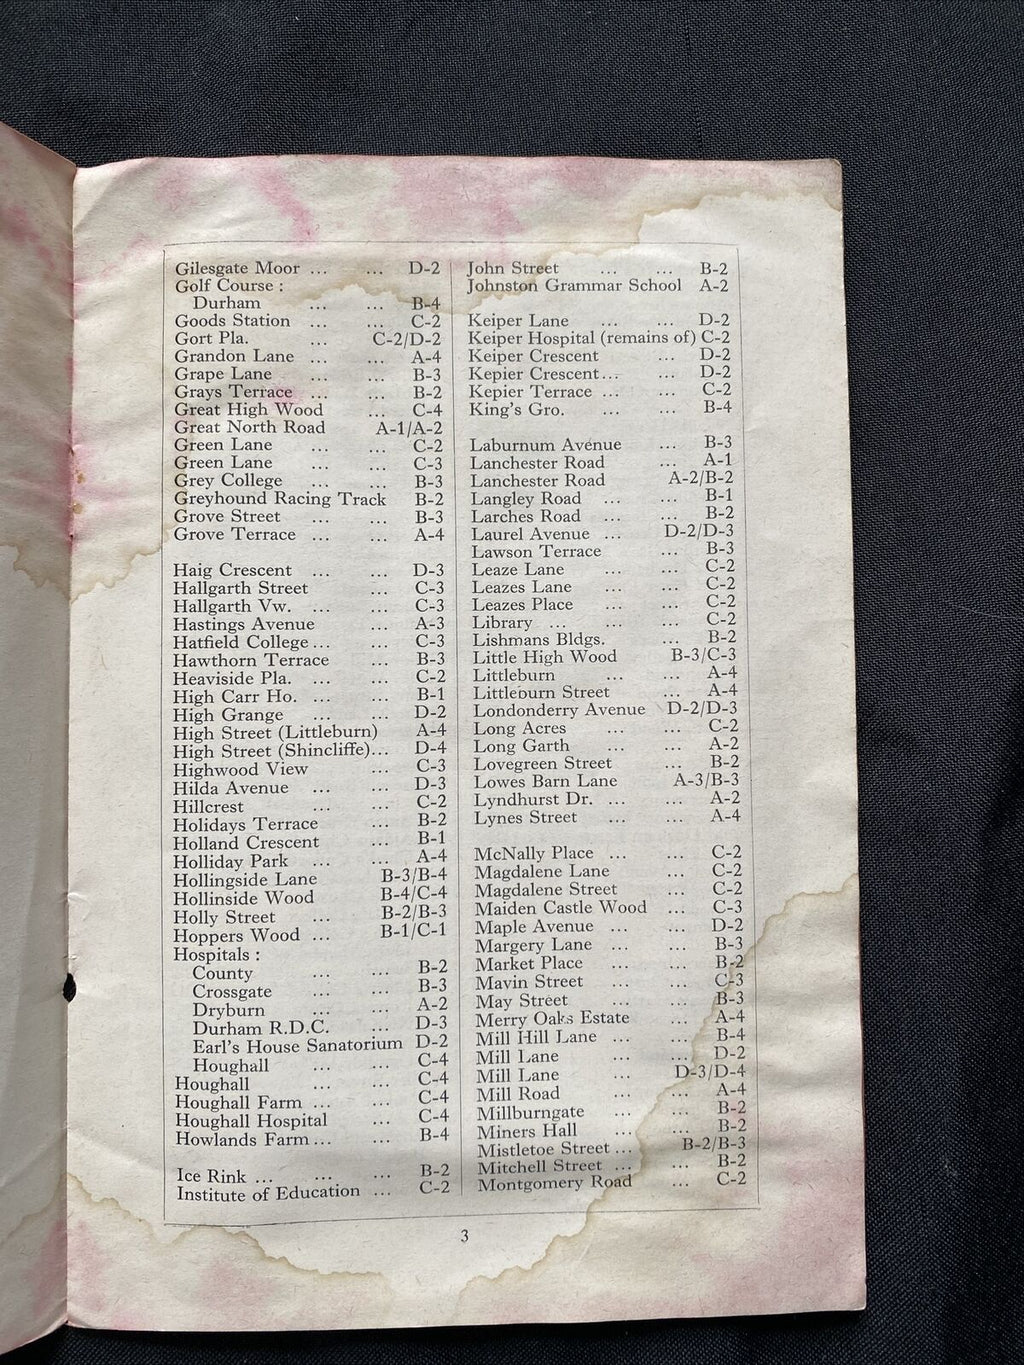 Gilesgate Moor ... ... D-2
Golf Course :
Durham ... ... B-4
Goods Station ... ... C-2
Gort Pla. ... C-2/D-2
Grandon Lane ... ... A-4
Grape Lane ... ... B-3
Grays Terrace ... ... B-2
Great High Wood ... C-4
Great North Road A-1/A-2
Green Lane ... ... C-2
Green Lane ... ... C-3
Grey College ... ... B-3
Greyhound Racing Track B-2
Grove Street ... ... B-3
Grove Terrace ... ... A-4
Haig Crescent ... ... D-3
Hallgarth Street ... C-3
Hallgarth Vw. ... ... C-3
Hastings Avenue ... A-3
Hatfield College ... ... C-3
Hawthorn Terrace ... B-3
Heaviside Pla. ... ... C-2
High Carr Ho. ... ... B-1
High Grange ... ... D-2
High Street (Littleburn) A-4
High Street (Shincliffe)... D-4
Highwood View ... C-3
Hilda Avenue ... ... D-3
Hillcrest ... ... C-2
Holidays Terrace ... B-2
Holland Crescent ... B-1
Holliday Park ... ... A-4
Hollingside Lane B-3/B-4
Hollinside Wood B-4/C-4
Holly Street ... B-2/B-3
Hoppers Wood ... B-1/C-1
Hospitals :
County ... ... B-2
Crossgate ... ... B-3
Dryburn ... ... A-2
Durham R.D.C. ... D-3
Earl's House Sanatorium D-2
Houghall ... ... C-4
Houghall ... ... C-4
Houghall Farm ... ... C-4
Houghall Hospital ... C-4
Howlands Farm ... ... B-4
Ice Rink ... ... ... B-2
Institute of Education ... C-2
John Street ... ... B-2
Johnston Grammar School A-2
Keiper Lane ... ... D-2
Keiper Hospital (remains of) C-2
Keiper Crescent ... D-2
Kepier Crescent ... ... D-2
Kepier Terrace ... ... C-2
King's Gro. ... ... B-4
Laburnum Avenue ... B-3
Lanchester Road ... A-1
Lanchester Road A-2/B-2
Langley Road ... ... B-1
Larches Road ... ... B-2
Laurel Avenue ... D-2/D-3
Lawson Terrace ... B-3
Leaze Lane ... ... C-2
Leazes Lane ... ... C-2
Leazes Place ... ... C-2
Library ... ... ... C-2
Lishmans Bldgs. ... B-2
Little High Wood B-3/C-3
Littleburn ... ... A-4
Littleburn Street ... A-4
Londonderry Avenue D-2/D-3
Long Acres ... ... C-2
Long Garth ... ... A-2
Lovegreen Street ... B-2
Lowes Barn Lane A-3/B-3
Lyndhurst Dr. ... ... A-2
Lynes Street ... ... A-4
McNally Place ... ... C-2
Magdalene Lane ... C-2
Magdalene Street ... C-2
Maiden Castle Wood ... C-3
Maple Avenue ... ... D-2
Margery Lane ... ... B-3
Market Place ... ... B-2
Mavin Street ... ... C-3
May Street ... ... B-3
Merry Oaks Estate ... A-4
Mill Hill Lane ... ... B-4
Mill Lane ... ... D-2
Mill Lane ... D-3/D-4
Mill Road ... ... A-4
Millburngate ... ... B-2
Miners Hall ... ... B-2
Mistletoe Street ... B-2/B-3
Mitchell Street ... ... B-2
Montgomery Road ... C-2
3